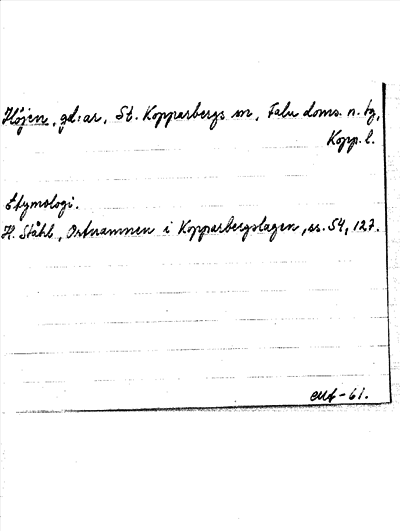 Höjen, gd:ar, St. Kopparbergs sn, Falu doms. n. tg,
Kopp. l.
Etymologi.
H. Ståhl, Ortnamnen i Kopparbergslagen, ss. 54, 127.
-61.